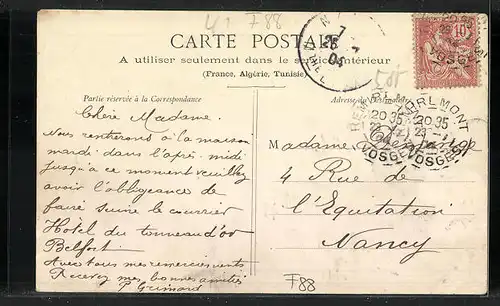 41 F88
CARTE POSTALE
A utiliser seulement dans le service intérieur
(France, Algérie, Tunisie)
Partie réservée à la Correspondance
Adresse du Destinataire
7
04
10
REMIREMONT
20 35
VOSGES
20 35
23
VOSGES
Chère Madame.
Nous rentrerons à la maison
mardi dans l'après-midi
jusqu'à ce moment veuillez
avoir l'obligeance de
faire suivre le courrier
Hôtel du tonneau d'or
Belfort
Avec tous mes remerciements
Recevez mes bonnes amitiés
Madame
4 Rue de
l'Equitation
Nancy
F88